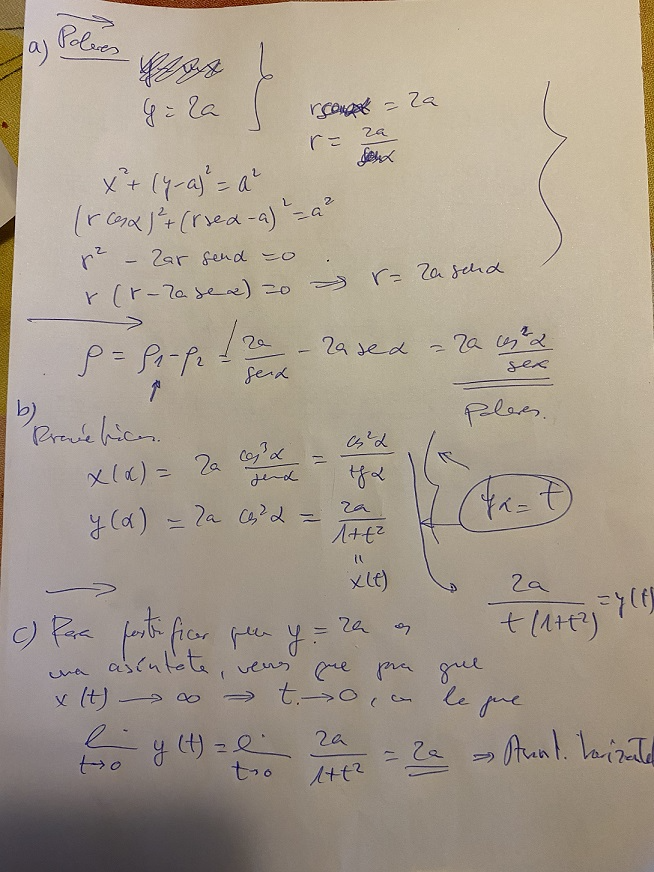 a) Polares
y = 2a
= 2a
r = 2a / senα
x² + (y-a)² = a²
(r cosα)² + (r senα - a)² = a²
r² - 2ar senα = 0
r (r - 2a senα) = 0 ⇒ r = 2a senα
ρ = ρ₁ - ρ₂ = 2a / senα - 2a senα = 2a cos²α / senα
Polares.
b)
Paramétricas.
x(α) = 2a cos³α / senα = cos²α / tgα
tgα = t
y(α) = 2a cos²α = 2a / 1+t²
"
x(t)
2a / t(1+t²) = y(t)
c) Para justificar que y = 2a es
una asíntota, vemos que para que
x(t) → ∞ ⇒ t → 0, con lo que
lim t→0 y(t) = lim t→0 2a / 1+t² = 2a ⇒ Asínt. horizontal